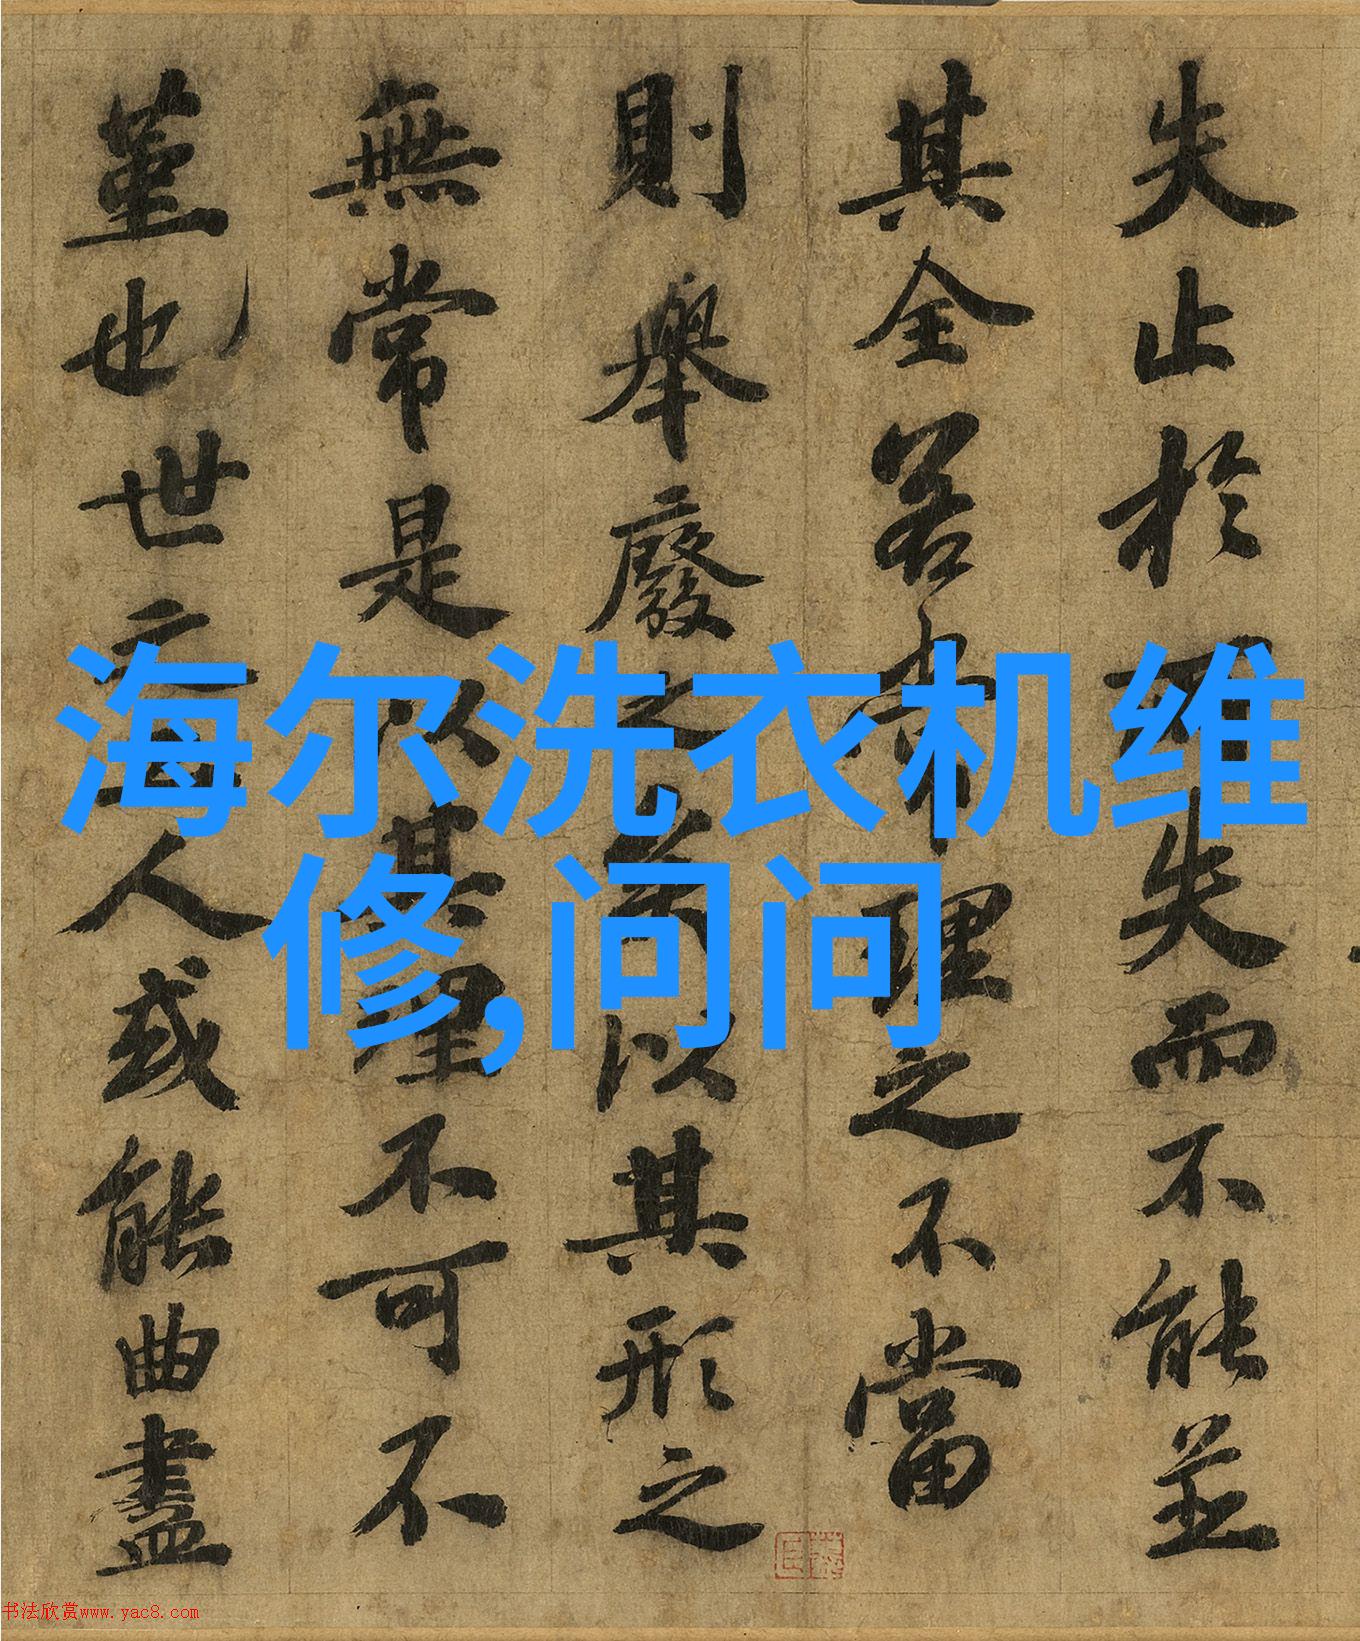 海尔洗衣机维
修,问问
失止於失而不能並
其全若常理之不當
則舉廢之以其形之
無常是以其理不可不
堇也世之人或能曲盡
书法欣赏www.yac8.com